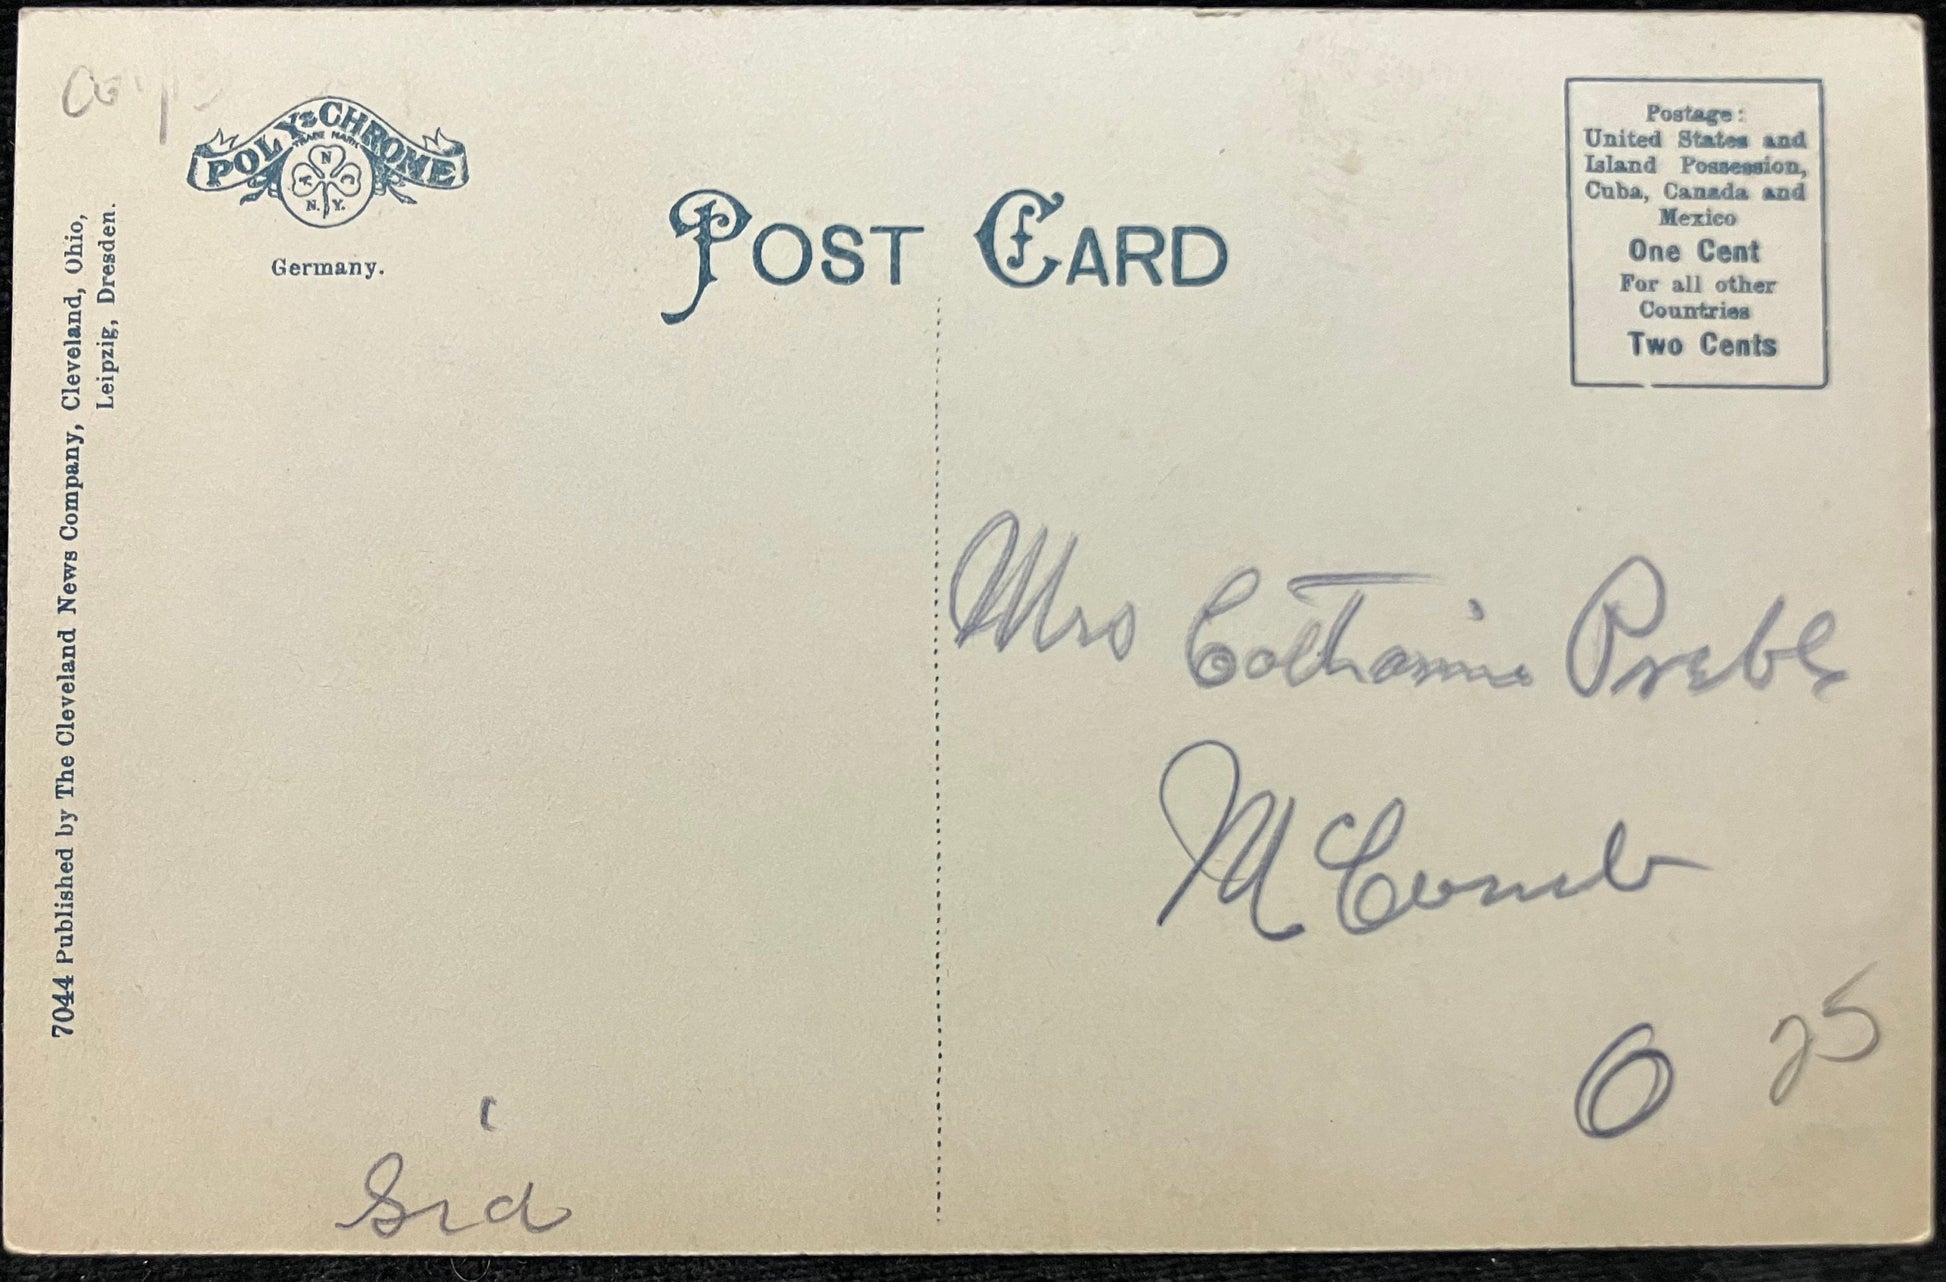 POLY-CHROME
TRADE MARK
N
A C
N. Y.
Germany.
POST CARD
Postage:
United States and
Island Possession,
Cuba, Canada and
Mexico
One Cent
For all other
Countries
Two Cents
7044 Published by The Cleveland News Company, Cleveland, Ohio,
Leipzig, Dresden.
Mrs Catharine Preble
McComb
O
25
Sid